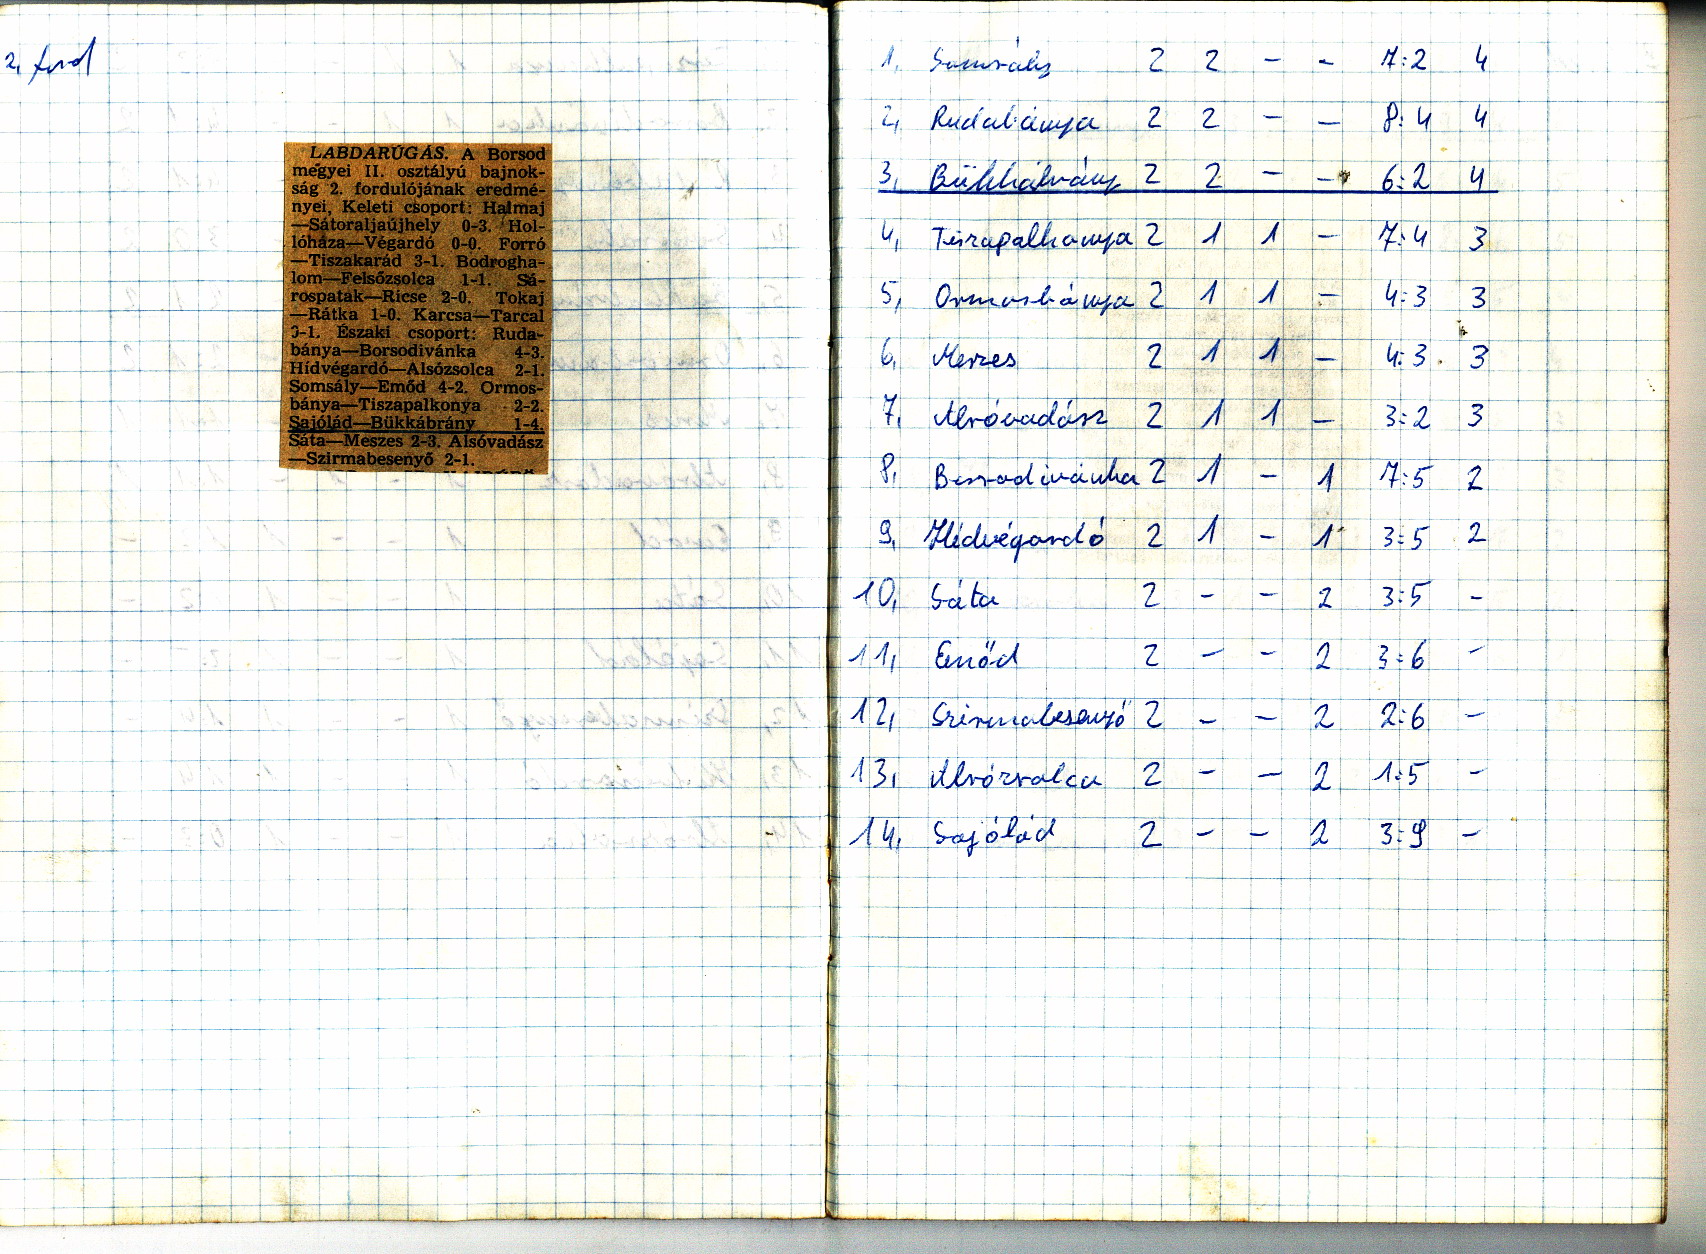 2, ford
LABDARÚGÁS. A Borsod
megyei II. osztályú bajnok-
ság 2. fordulójának eredmé-
nyei, Keleti csoport: Halmaj
—Sátoraljaújhely 0-3. Hol-
lóháza—Végardó 0-0. Forró
—Tiszakarád 3-1. Bodrogha-
lom—Felsőzsolca 1-1. Sá-
rospatak—Ricse 2-0. Tokaj
—Rátka 1-0. Karcsa—Tarcal
3-1. Északi csoport: Ruda-
bánya—Borsodivánka 4-3.
Hidvégardó—Alsózsolca 2-1.
Somsály—Emőd 4-2. Ormos-
bánya—Tiszapalkonya 2-2.
Sajólád—Bükkábrány 1-4.
Sáta—Meszes 2-3. Alsóvadász
—Szirmabesenyő 2-1.
1, Somsály 2 2 - - 7:2 4
2, Rudabánya 2 2 - - 8:4 4
3, Bükkábrány 2 2 - - 6:2 4
4, Tiszapalkonya 2 1 1 - 7:4 3
5, Ormosbánya 2 1 1 - 4:3 3
6, Meszes 2 1 1 - 4:3 3
7, Alsóvadász 2 1 1 - 3:2 3
8, Borsodivánka 2 1 - 1 7:5 2
9, Hidvégardó 2 1 - 1 3:5 2
10, Sáta 2 - - 2 3:5 -
11, Emőd 2 - - 2 3:6 -
12, Szirmabesenyő 2 - - 2 2:6 -
13, Alsózsolca 2 - - 2 1:5 -
14, Sajólád 2 - - 2 3:9 -